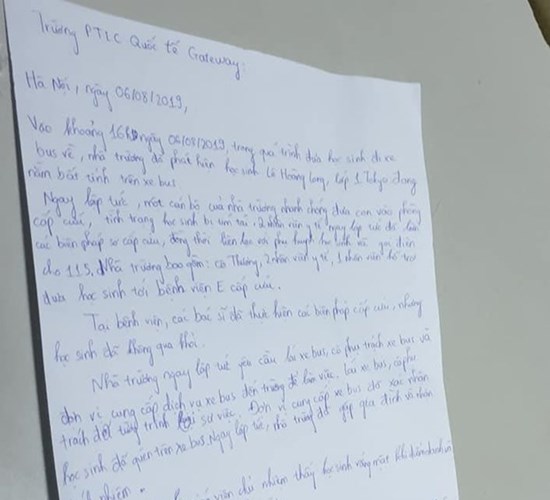 Trường PTLC Quốc tế Gateway:
Hà Nội, ngày 06/08/2019,
Vào khoảng 16h ngày 06/08/2019, trong quá trình đưa học sinh đi xe
bus về, nhà trường đã phát hiện học sinh Lê Hoàng Long, lớp 1 Tokyo đang
nằm bất tỉnh trên xe bus
Ngay lập tức, một cán bộ của nhà trường nhanh chóng đưa con vào phòng
cấp cứu, tình trạng học sinh bị tím tái. 2 nhân viên y tế ngay lập tức đã làm
các biện pháp sơ cấp cứu, đồng thời liên lạc với phụ huynh học sinh và gọi điện
cho 115. Nhà trường bao gồm: cô Thương, 2 nhân viên y tế, 1 nhân viên hỗ trợ
đưa học sinh tới bệnh viện E cấp cứu.
Tại bệnh viện, các bác sĩ đã thực hiện các biện pháp cấp cứu, nhưng
học sinh đã không qua khỏi.
Nhà trường ngay lập tức yêu cầu lái xe bus, cô phụ trách xe bus và
đơn vị cung cấp dịch vụ xe bus đến trường để làm việc. Lái xe bus, cô phụ
trách để tường trình lại sự việc. Đơn vị cung cấp xe bus đã xác nhận
học sinh đã quên trên xe bus. Ngay lập tức, nhà trường đã gặp gia đình và nhận
trách nhiệm.
viên chủ nhiệm thấy học sinh vắng mặt khi điểm danh